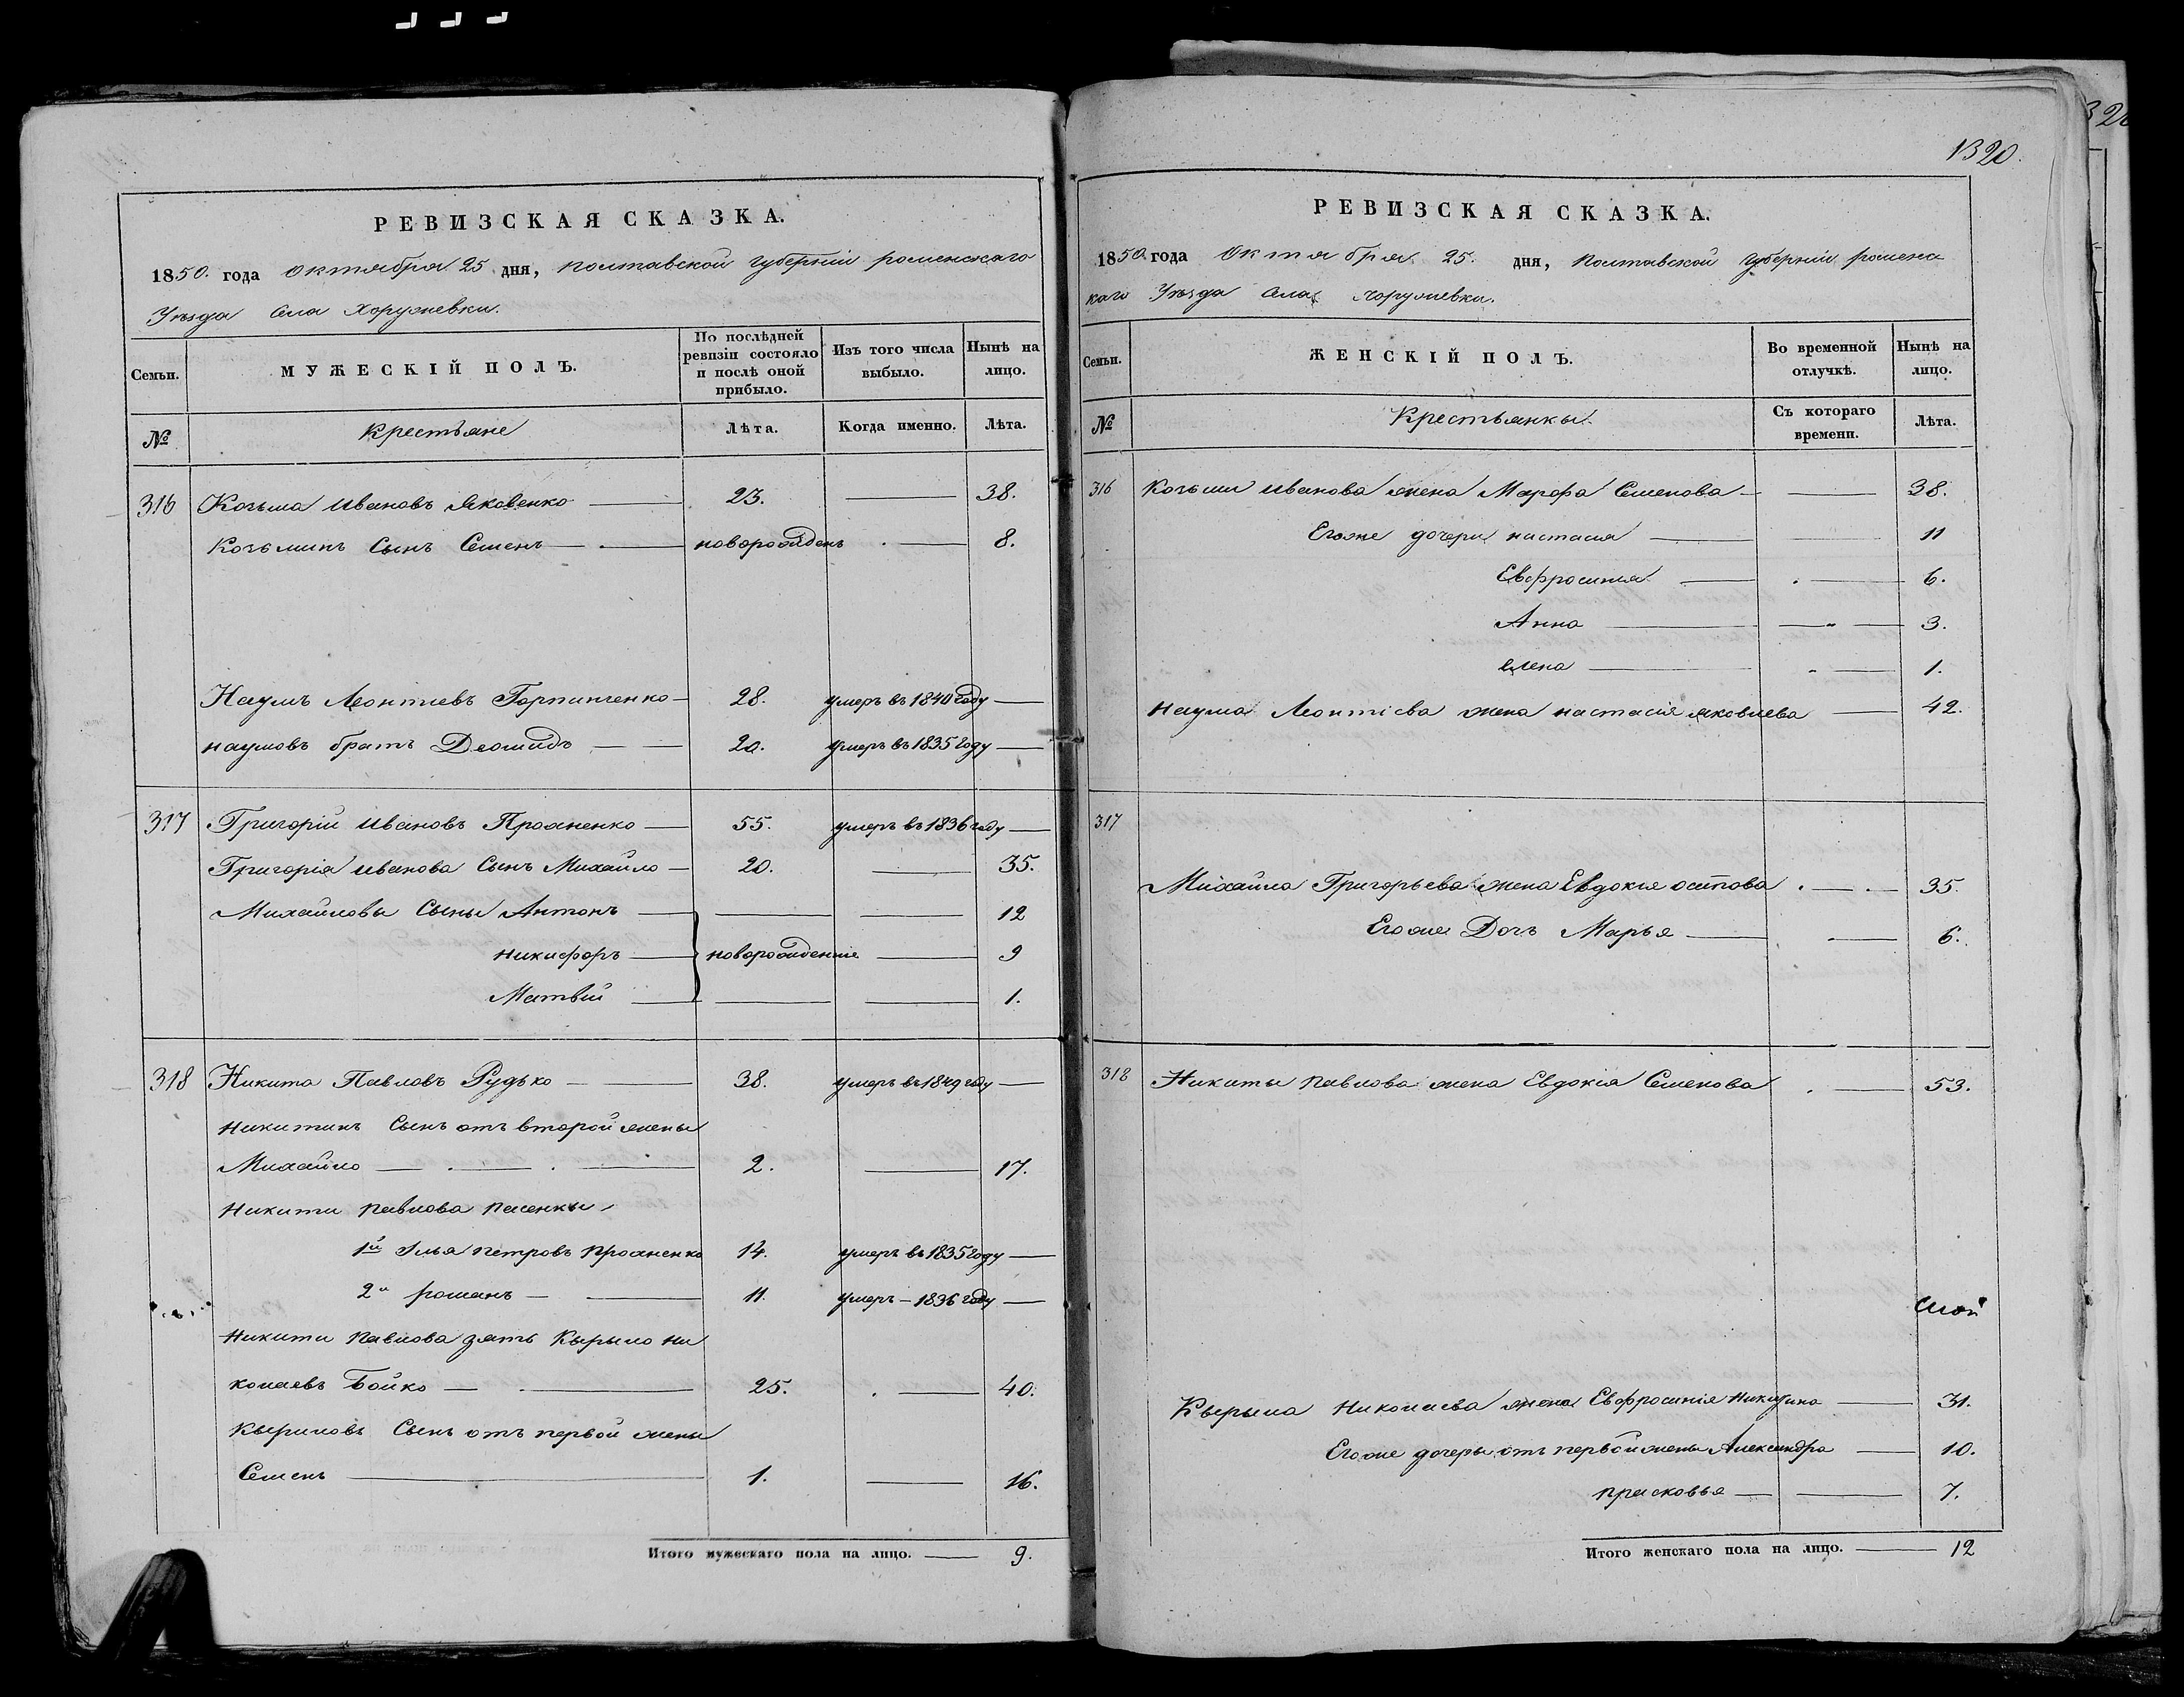 РЕВИЗСКАЯ СКАЗКА.
1850. года Октября 25 дня, Полтавской губерніи роменскаго
Уѣзда Села Хоружевки.
Семьи.
МУЖЕСКІЙ ПОЛЪ.
По послѣдней ревизіи состояло и послѣ оной прибыло.
Изъ того числа выбыло.
Нынѣ на лицо.
№
Крестьяне
Лѣта.
Когда именно.
Лѣта.
316 Козьма Ивановъ Яковенко 23. 38.
Козьминъ Сынъ Семенъ новорожденъ 8.
Наумъ Леонтиевъ Горпинченко 28. умеръ въ 1840 году
наумовъ братъ Деомидъ 20. умеръ въ 1835 году
317 Григорій Ивановъ Прояненко 55. умеръ въ 1836 году
Григорія Иванова Сынъ Михайло 20. 35.
Михайловы Сыны Антонъ 12
никифоръ новорожденніе 9
Матвій 1.
318 Никита Павловъ Рудько 38. умеръ въ 1849 году
никитинъ Сынъ отъ второй жены
Михайло 2. 17.
Никити Павлова пасенки
1й Илья петровъ прояненко 14. умеръ въ 1835 году
2й романъ 11. умеръ - 1836 году
Никити Павлова зять Кырыло ни
колаевъ Бойко 25. 40.
Кыриловъ Сынъ отъ первой жены
Семенъ 1. 16.
Итого мужескаго пола на лицо. 9.
1320.
РЕВИЗСКАЯ СКАЗКА.
1850 года Октября 25. дня, Полтавской губерніи роменс
каго Уѣзда Села Хоружевки.
Семьи.
ЖЕНСКІЙ ПОЛЪ.
Во временной отлучкѣ.
Нынѣ на лицо.
№
Крестьянкы.
Съ котораго времени.
Лѣта.
316 Козьми Иванова жена Марфа Семенова 38.
Егоже дочери настасия 11
Евфросинья 6.
Анна 3.
елена 1.
Наума Леонтіева жена настасія яковлева 42.
317
Михайла Григорьева жена Евдокія осипова 35.
Егоже Дочь Марья 6.
318 Никиты павлова жена Евдокія Семенова 53.
Кырыла Николаева жена Евфросинія Никитина 31.
Егоже дочеры отъ первой жены Александра 10.
прасковья 7.
Итого женскаго пола на лицо. 12